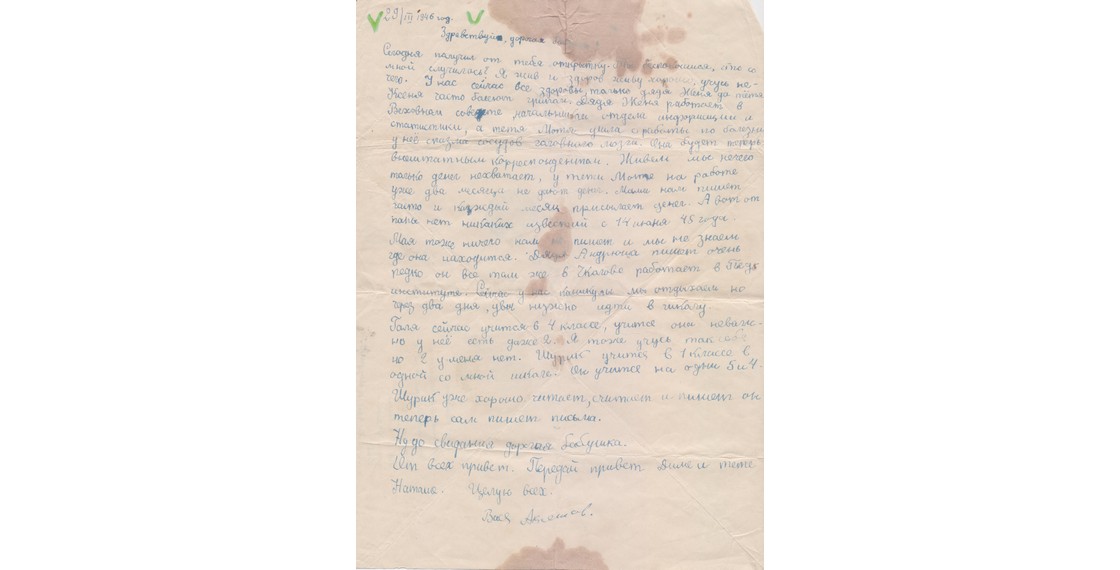 29/III 1946 год.
Здравствуй, дорогая
Сегодня получил от тебя открытку. беспокоишся, что со
мной случилось? Я жив и здоров живу хорошо, учусь ни-
чего. У нас сейчас все здоровы, только дядя Женя да тётя
Ксеня часто болеют гриппом. Дядя Женя работает в
Веховном совете начальником отдела информации и
статистики, а тетя Мотя ушла с работы по болезни
у неё спазма сосудов головного мозга. Она будет теперь
внештатным корреспондентом. Живем мы нечего
только денег нехватает, у тети Моти на работе
уже два месяца не дают денег. Мама нам пишет
часто и каждый месяц присылает денег. А вот от
папы нет никаких известий с 14 июня 45 года.
Мая тоже ничего нам не пишет и мы не знаем
где она находится. Дядя Андрюша пишет очень
редко он все там же в Чкалове работает в
институте. Сейчас у нас каникулы мы отдыхаем но
через два дня, уже нужно идти в школу.
Галя сейчас учится в 4 классе, учится она неваж-
но у неё есть даже 2. Я тоже учусь так себе
но 2 у меня нет. Шурик учится в 1 классе в
одной со мной школе. Он учится на одни 5 и 4.
Шурик уже хорошо читает, считает и пишет он
теперь сам пишет письма.
Ну до свидания дорогая бабушка.
От всех привет. Передай привет Диме и тете
Наташе. Целую всех.
Вася